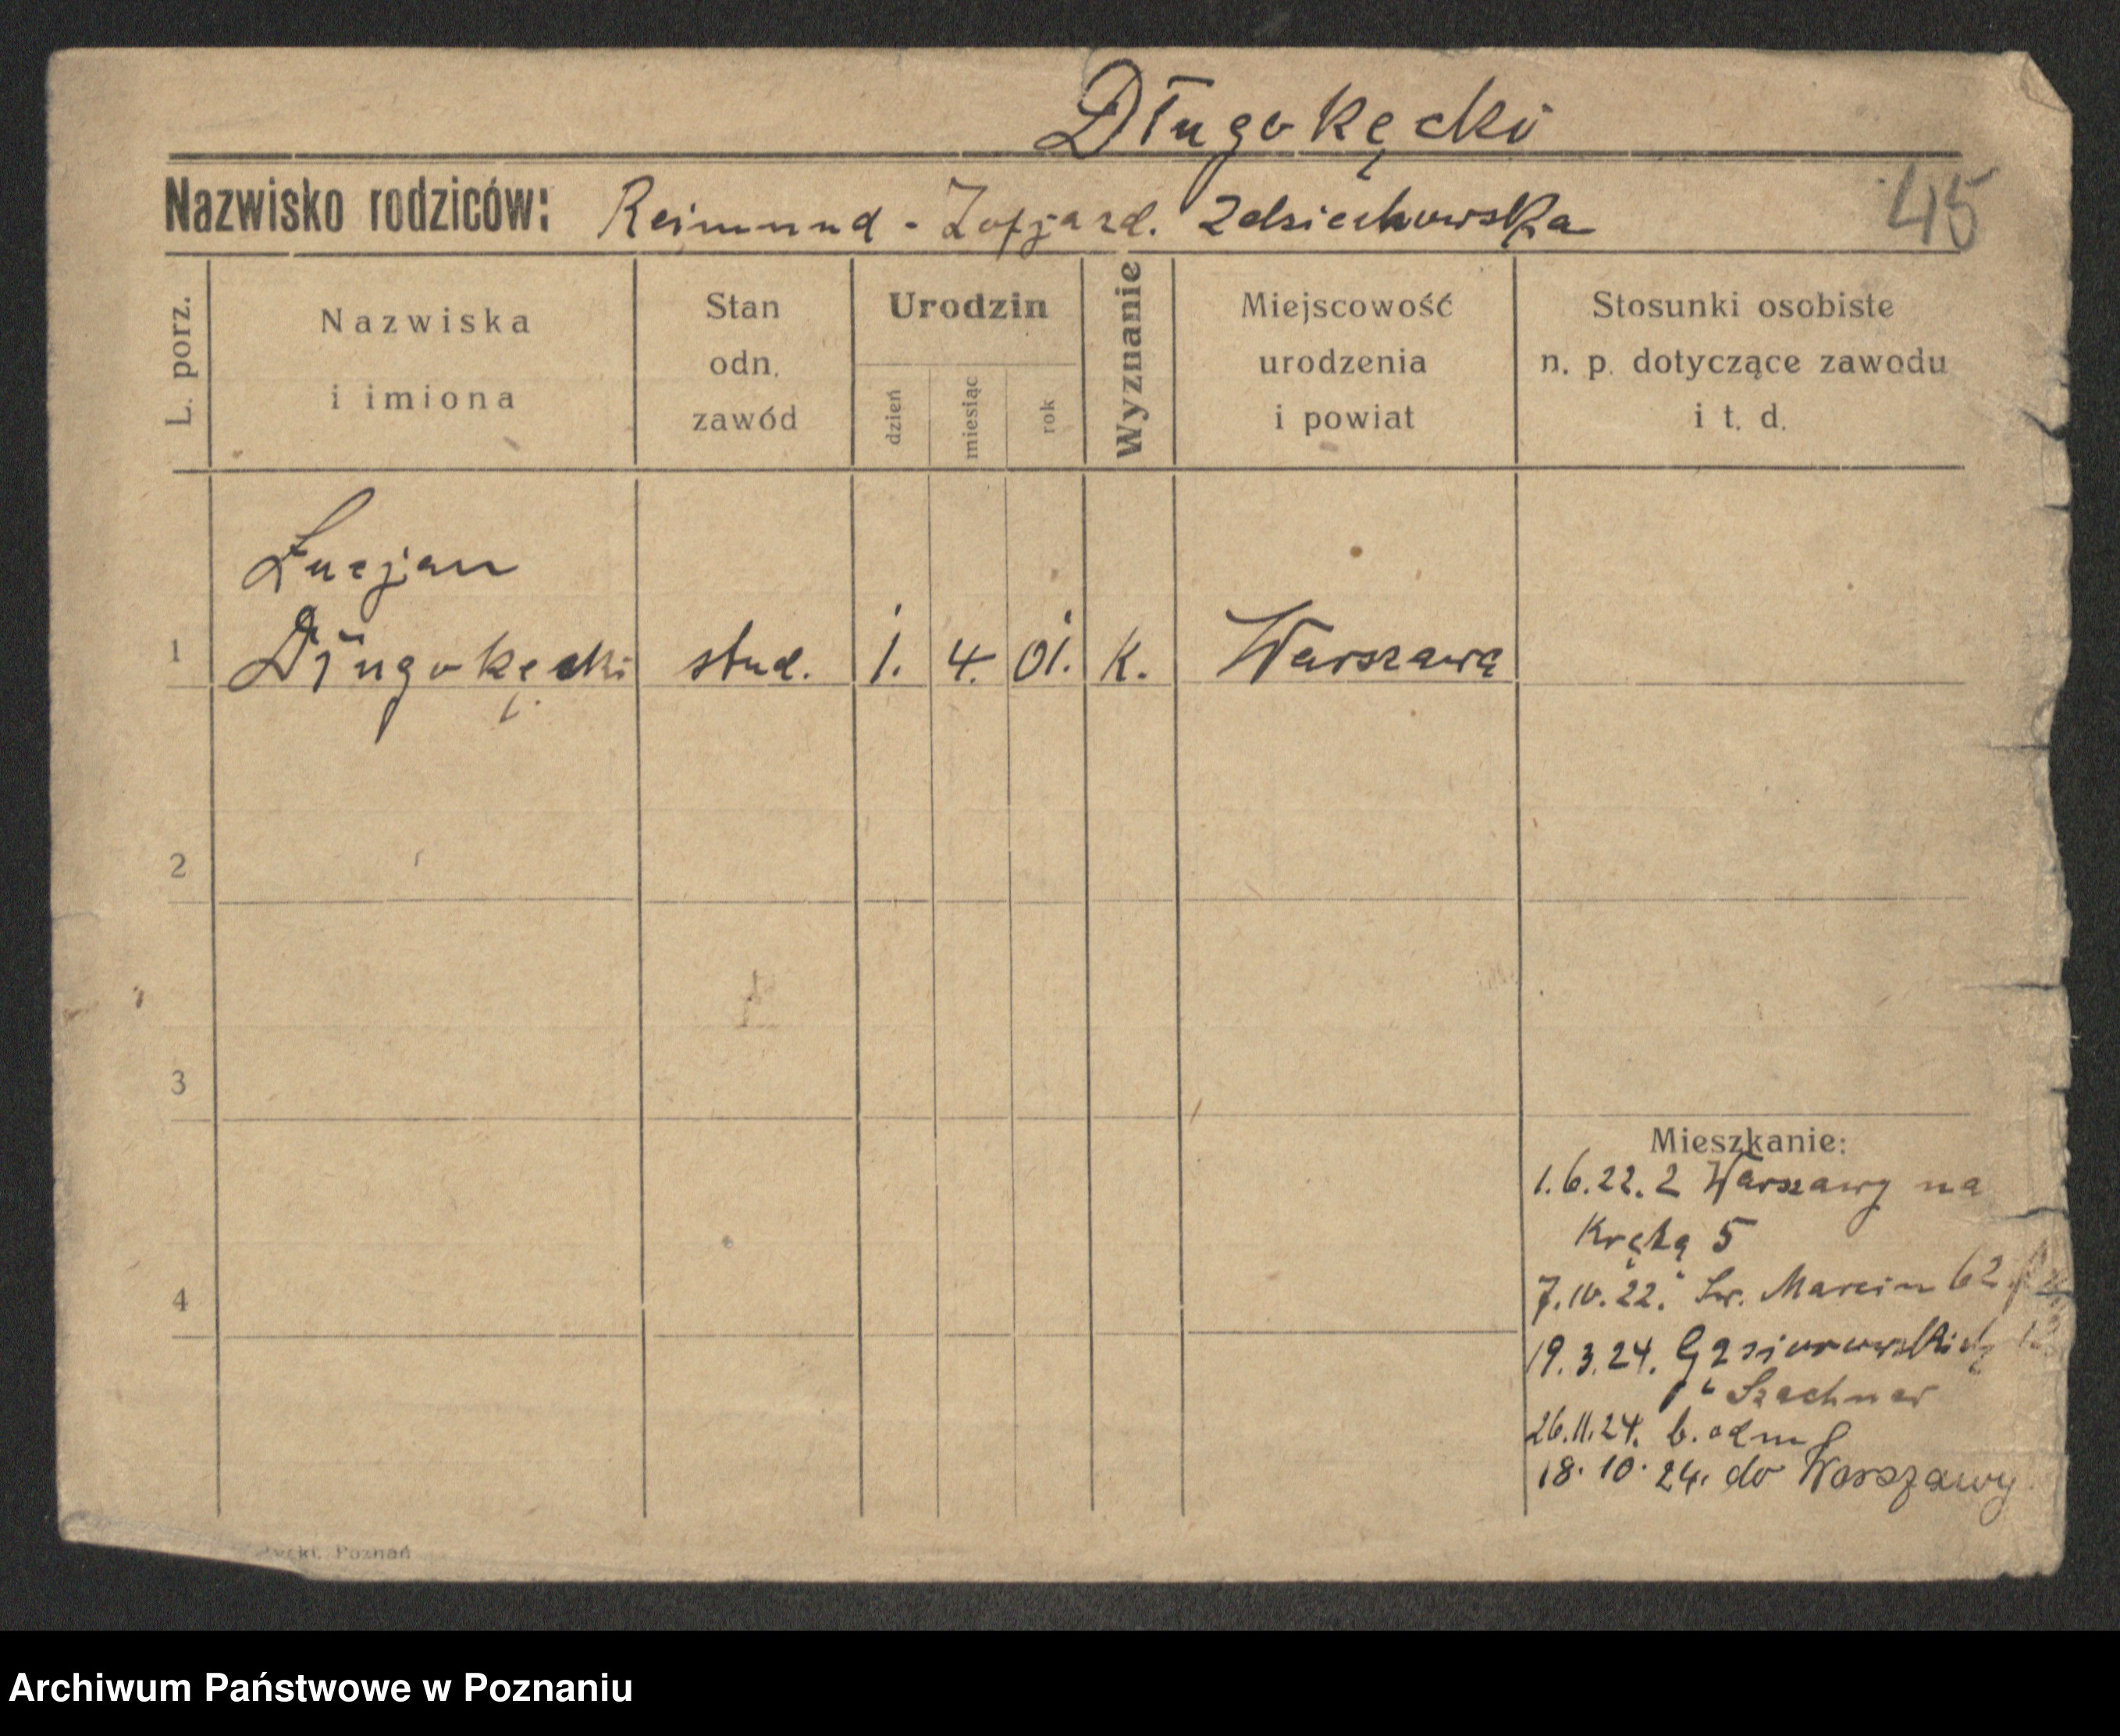 Długokęcki
Nazwisko rodziców: Reimund - Zofja zd. Zdziechowska
45
L. porz.
Nazwiska
i imiona
Stan
odn.
zawód
Urodzin
dzień
miesiąc
rok
Wyznanie
Miejscowość
urodzenia
i powiat
Stosunki osobiste
n. p. dotyczące zawodu
i t. d.
Lucjan
1 Długokęcki stud. 1. 4. 01. k. Warszawa
2
3
Mieszkanie:
1.6.22. z Warszawy na
Krętą 5
4
7.10.22. Św. Marcin 62
19.3.24. Gąsiorowskich 12
Szachner
26.11.24. b. odm
18.10.24. do Warszawy
Poznań
Archiwum Państwowe w Poznaniu